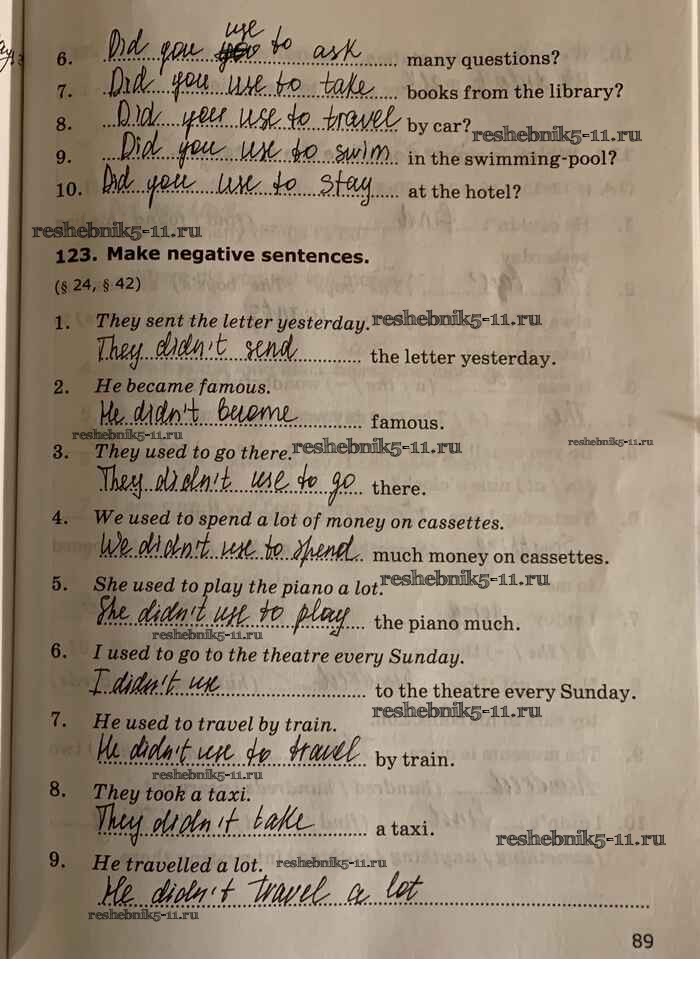 use
6. Did you to ask many questions?
7. Did you use to take books from the library?
8. Did you use to travel by car?
reshebnik5-11.ru
9. Did you use to swim in the swimming-pool?
10. Did you use to stay at the hotel?
reshebnik5-11.ru
123. Make negative sentences.
(§ 24, § 42)
1. They sent the letter yesterday. reshebnik5-11.ru
They didn't send the letter yesterday.
2. He became famous.
He didn't become famous.
reshebnik5-11.ru reshebnik5-11.ru
3. They used to go there. reshebnik5-11.ru
They didn't use to go there.
4. We used to spend a lot of money on cassettes.
We didn't use to spend much money on cassettes.
5. She used to play the piano a lot. reshebnik5-11.ru
She didn't use to play the piano much.
reshebnik5-11.ru
6. I used to go to the theatre every Sunday.
I didn't use to the theatre every Sunday.
reshebnik5-11.ru
7. He used to travel by train.
He didn't use to travel by train.
reshebnik5-11.ru
8. They took a taxi.
They didn't take a taxi.
reshebnik5-11.ru
9. He travelled a lot. reshebnik5-11.ru
He didn't travel a lot
reshebnik5-11.ru
89